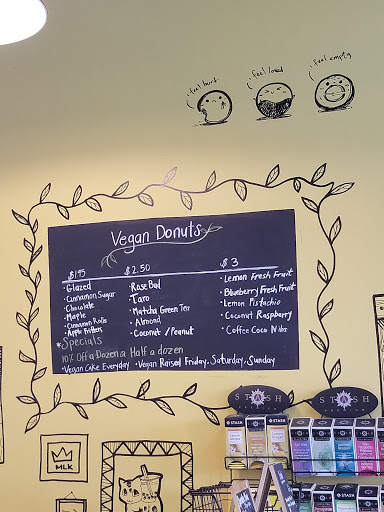 feel hurt
feel loved
feel empty
Vegan Donuts
$1.95
• Glazed
• Cinnamon Sugar
• Chocolate
• Maple
• Cinnamon Rolls
• Apple Fritters
$2.50
• Rose Bud
• Taro
• Matcha Green Tea
• Almond
• Coconut / Peanut
$3
• Lemon Fresh Fruit
• Blueberry Fresh Fruit
• Lemon Pistachio
• Coconut Raspberry
• Coffee Coco Nibs
*Specials
10% Off a Dozen & Half a dozen
• Vegan Cake Everyday • Vegan Raised Friday, Saturday, Sunday
MLK
STASH
STASH
STASH
STASH
STASH
STASH
STASH
STASH